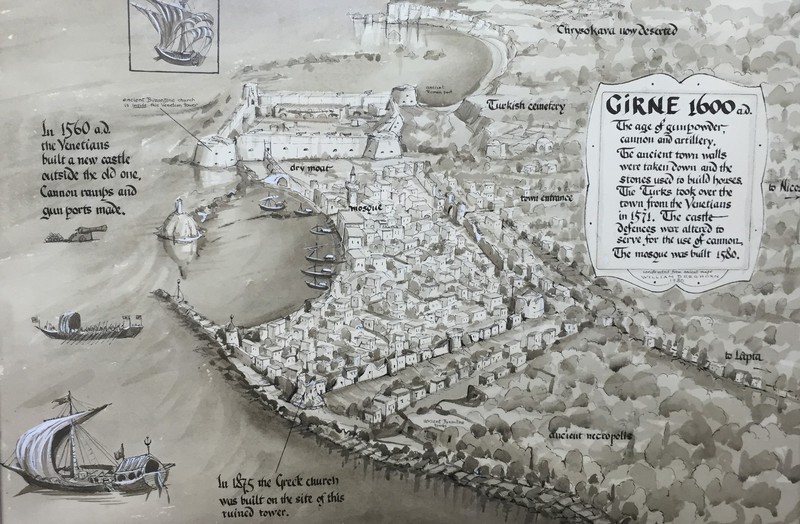 Chrysokava now deserted
ancient Byzantine church
is inside this Venetian tower
ancient
Roman
GİRNE 1600 a.d.
The age of gunpowder,
cannon and artillery.
The ancient town walls
were taken down and the
stones used to build houses.
The Turks took over the
town from the Venetians
in 1571. The castle
defences were altered to
serve for the use of cannon.
The mosque was built 1580.
constructed from ancient maps
WILLIAM DREGHORN
Turkish cemetery
In 1560 a.d.
the Venetians
built a new castle
outside the old one.
Cannon ramps and
gun ports made.
dry moat
mosque
town entrance
to Nico
to Lapta
ancient
ancient necropolis
In 1875 the Greek church
was built on the site of this
ruined tower.